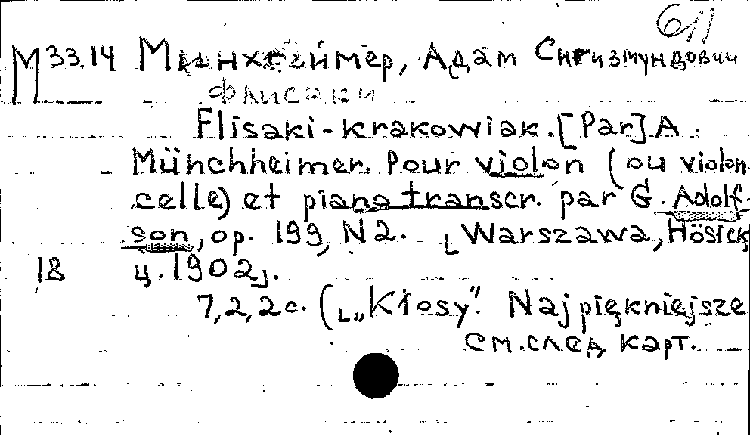 611
М33.14 Мюнхгеймер, Адам Сигизмундович
Флисаки
Flisaki-krakowiak. [Par] A.
Münchheimer. Pour violon (ou violon-
celle) et piano transcr. par G. Adolf-
son, op. 199, N2. [Warszawa, Hösick,
18 ц. 1902].
7,2,2с. ([„Kłosy". Najpiękniejsze
см. след карт.